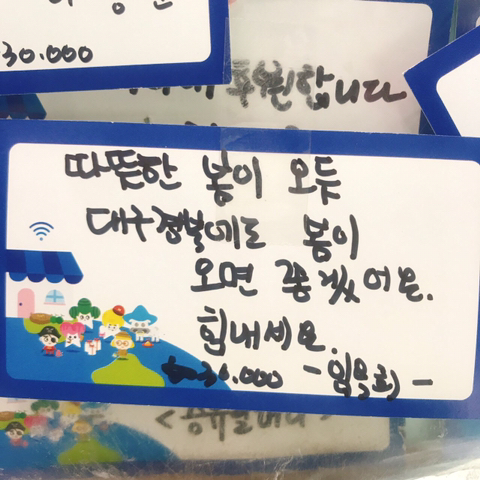 30.000
후원합니다
따뜻한 봄이 오듯
대구경북에도 봄이
오면 좋겠어요.
힘내세요.
30.000 -임옥희-